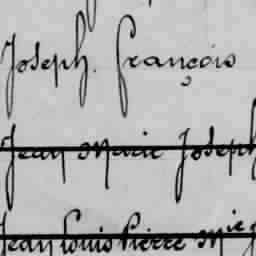 Joseph. François
Jean Marie Joseph
Jean Louis Pierre Mie J